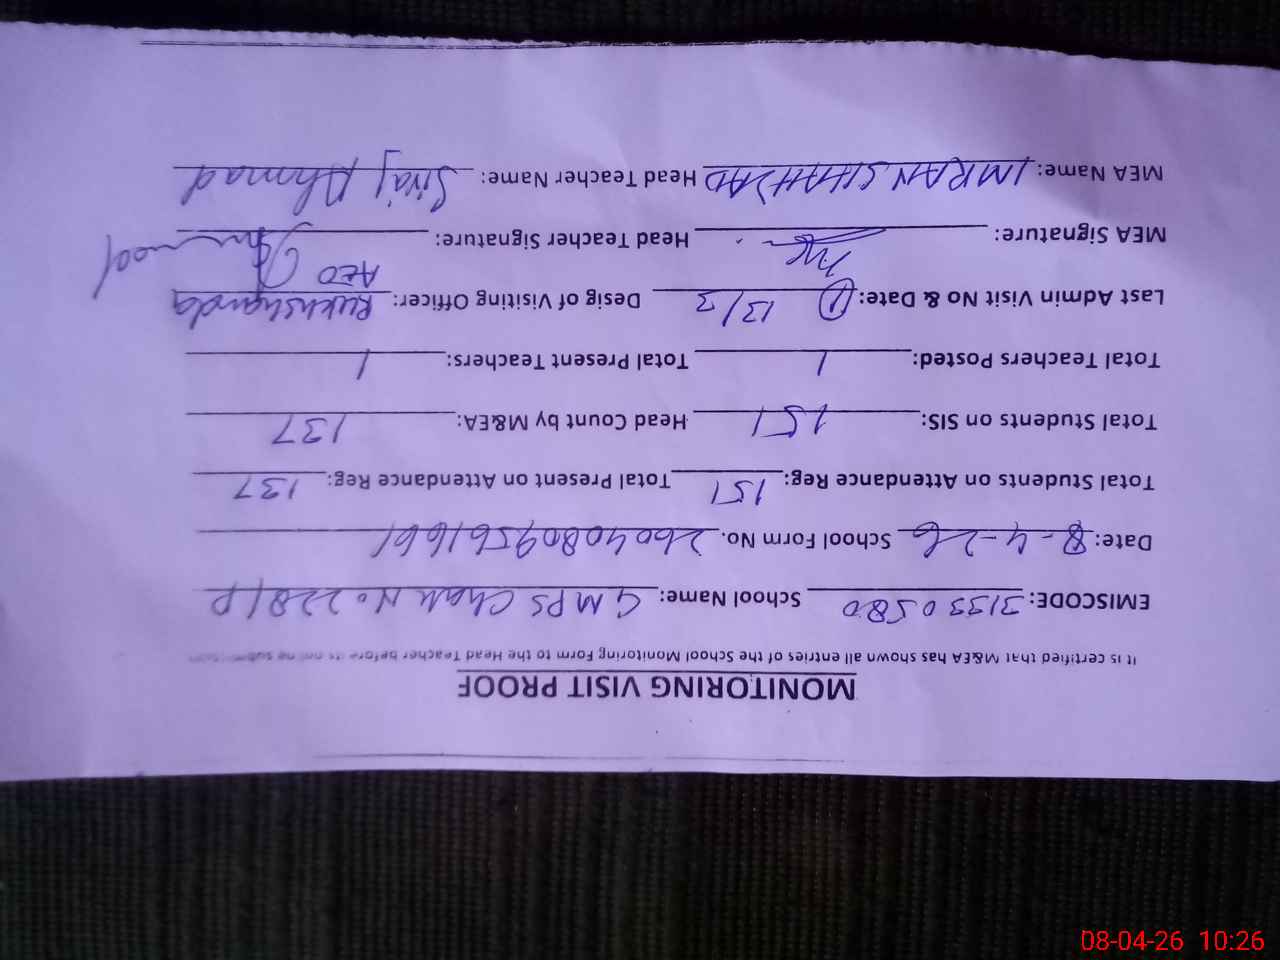 MONITORING VISIT PROOF
It is certified that M&EA has shown all entries of the School Monitoring Form to the Head Teacher before its online submission
EMISCODE: 31330580 School Name: GMPS Chak No 228/P
Date: 8-4-26 School Form No. 2604080956166
Total Students on Attendance Reg: 151 Total Present on Attendance Reg: 137
Total Students on SIS: 151 Head Count by M&EA: 137
Total Teachers Posted: 1 Total Present Teachers: 1
Last Admin Visit No & Date: 1 13/3 Desig of Visiting Officer: Rukhshanda AEO
MEA Signature: Head Teacher Signature:
MEA Name: IMRAN SHAHZAD Head Teacher Name: Siraj Ahmad
08-04-26 10:26